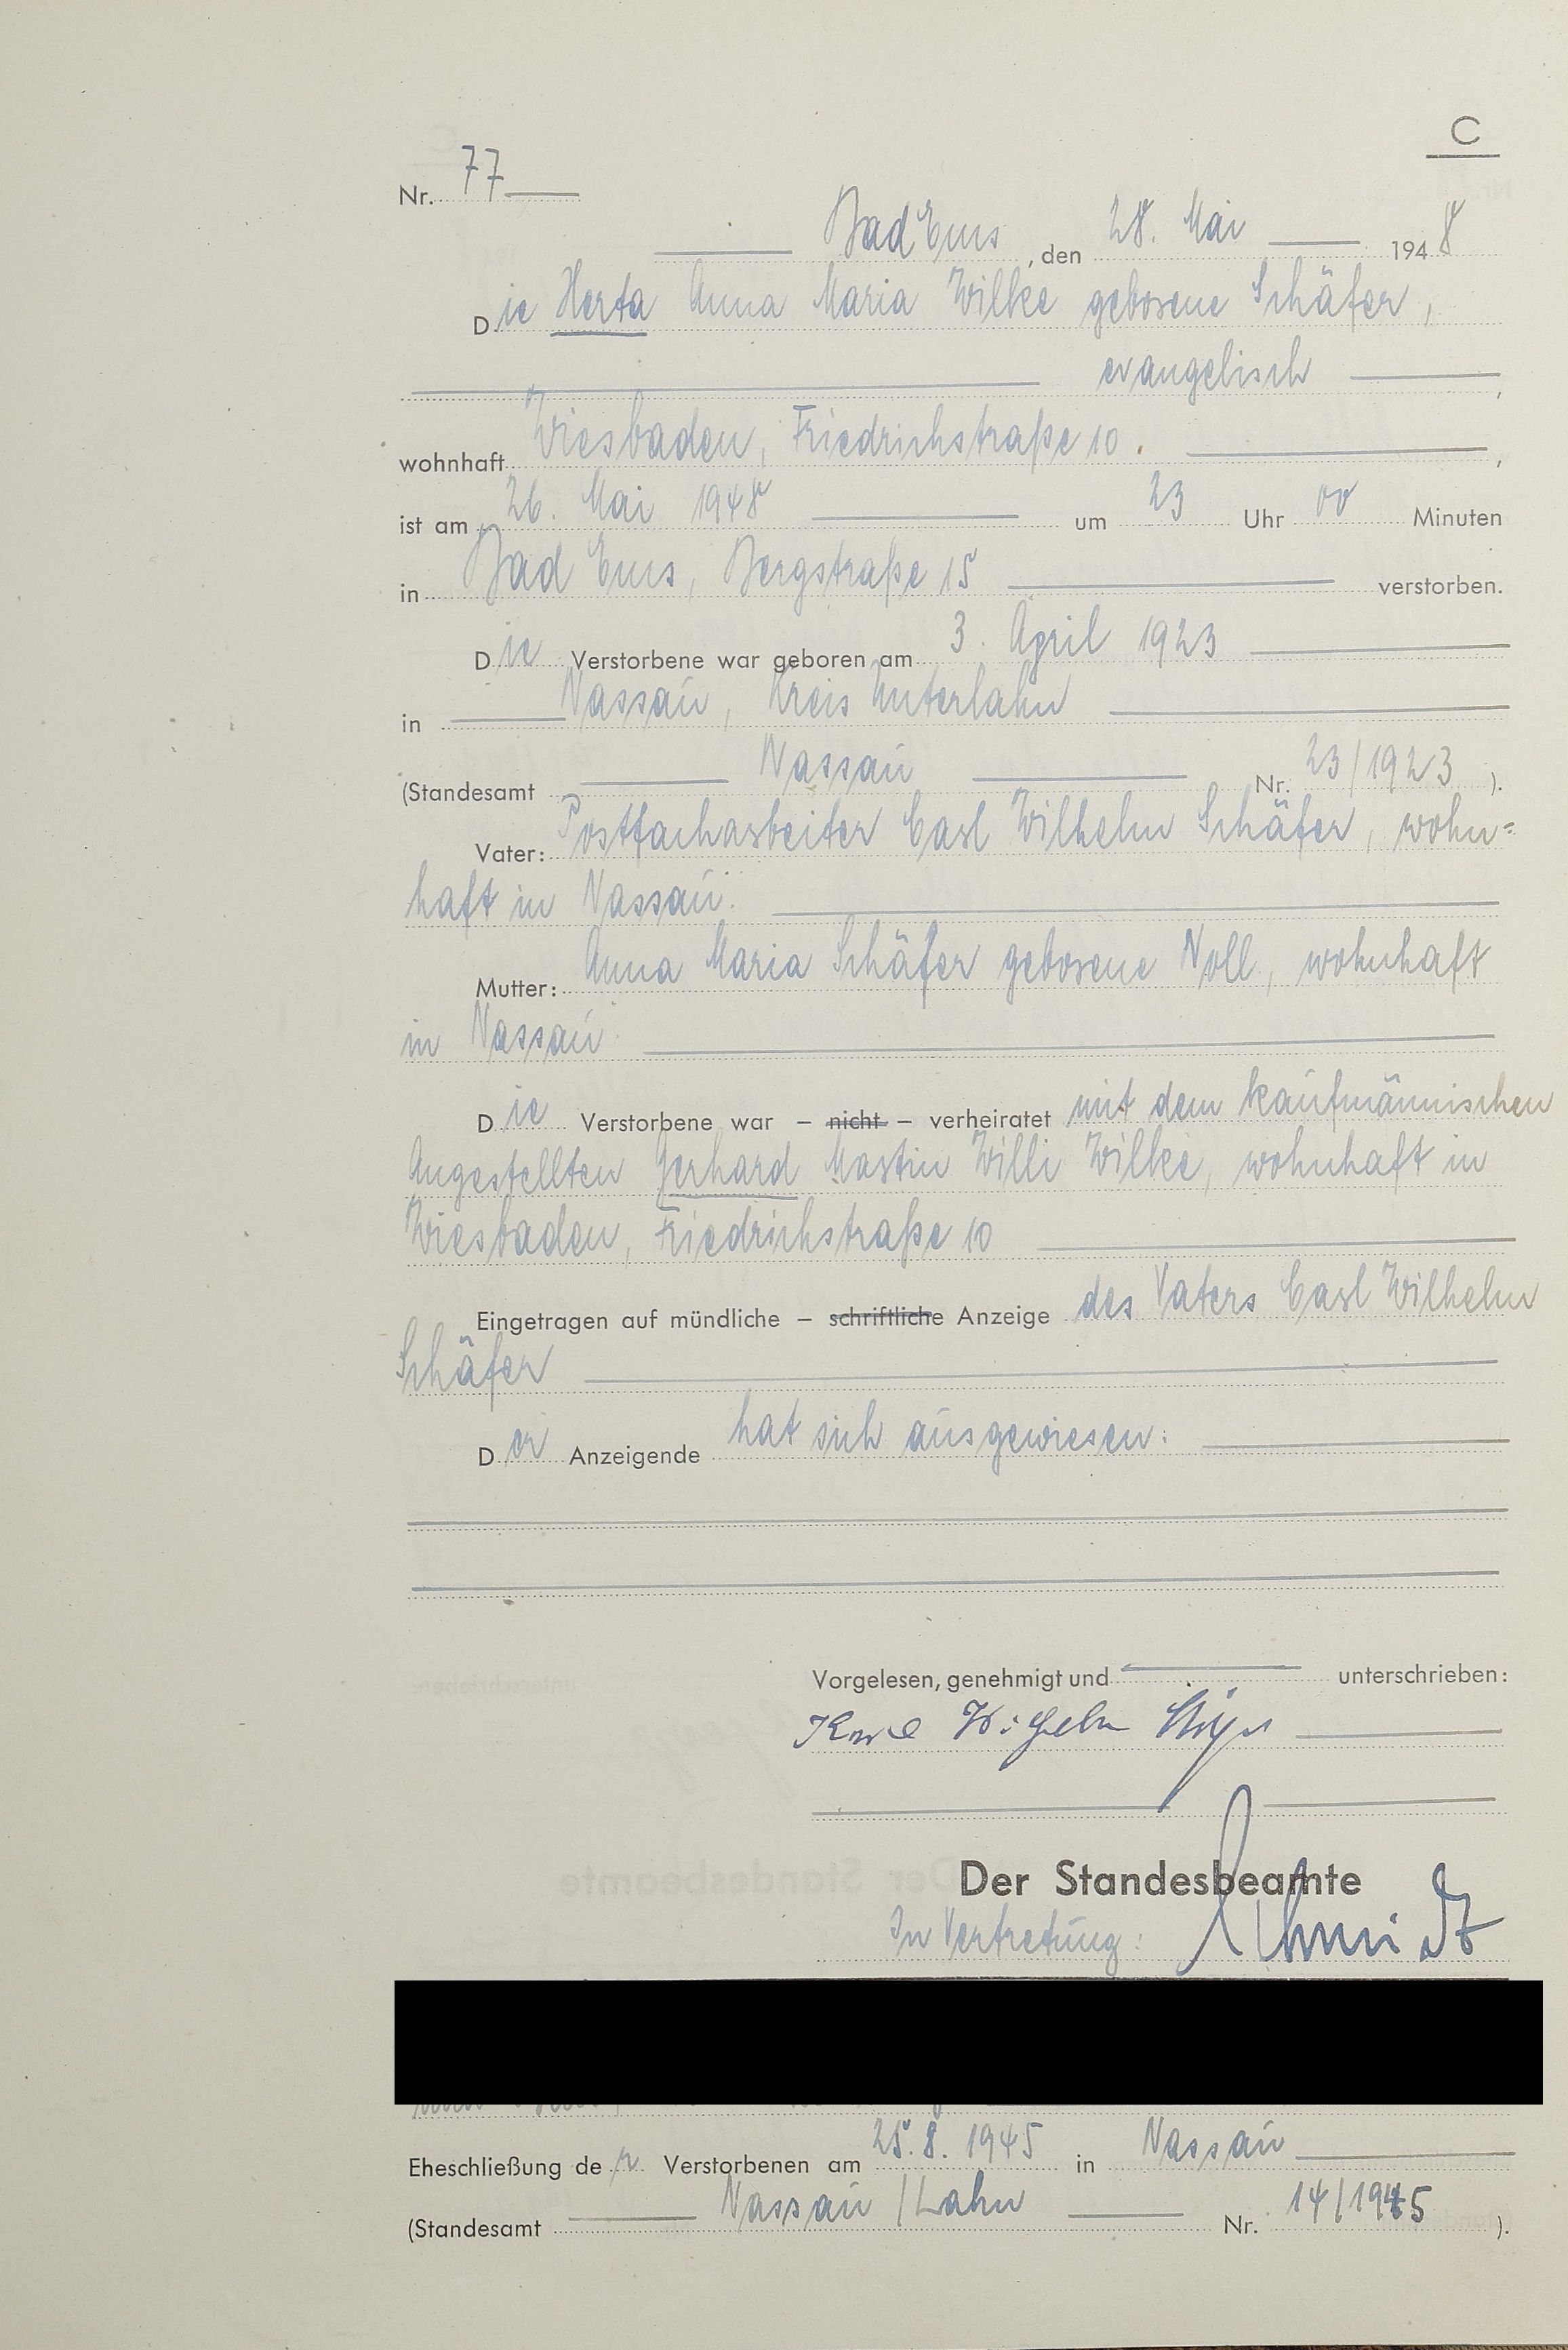 C
Nr. 77
Bad Ems, den 28. Mai 1948
Die Herta Anna Maria Wilke geborene Schäfer,
evangelisch,
wohnhaft Wiesbaden, Friedrichstraße 10.,
ist am 26. Mai 1948 um 23 Uhr 00 Minuten
in Bad Ems, Bergstraße 15 verstorben.
Die Verstorbene war geboren am 3. April 1923
in Nassau, Kreis Unterlahn
(Standesamt Nassau Nr. 23/1923).
Vater: Postfacharbeiter Carl Wilhelm Schäfer, wohn=
haft in Nassau.
Mutter: Anna Maria Schäfer geborene Noll, wohnhaft
in Nassau.
Die Verstorbene war – nicht – verheiratet mit dem kaufmännischen
Angestellten Gerhard Martin Willi Wilke, wohnhaft in
Wiesbaden, Friedrichstraße 10
Eingetragen auf mündliche – schriftliche Anzeige des Vaters Carl Wilhelm
Schäfer
Der Anzeigende hat sich ausgewiesen.
Vorgelesen, genehmigt und unterschrieben:
Karl Wilhelm Schäfer
Der Standesbeamte
In Vertretung: Schmidt
Eheschließung der Verstorbenen am 25.8.1945 in Nassau
(Standesamt Nassau/Lahn Nr. 14/1945).